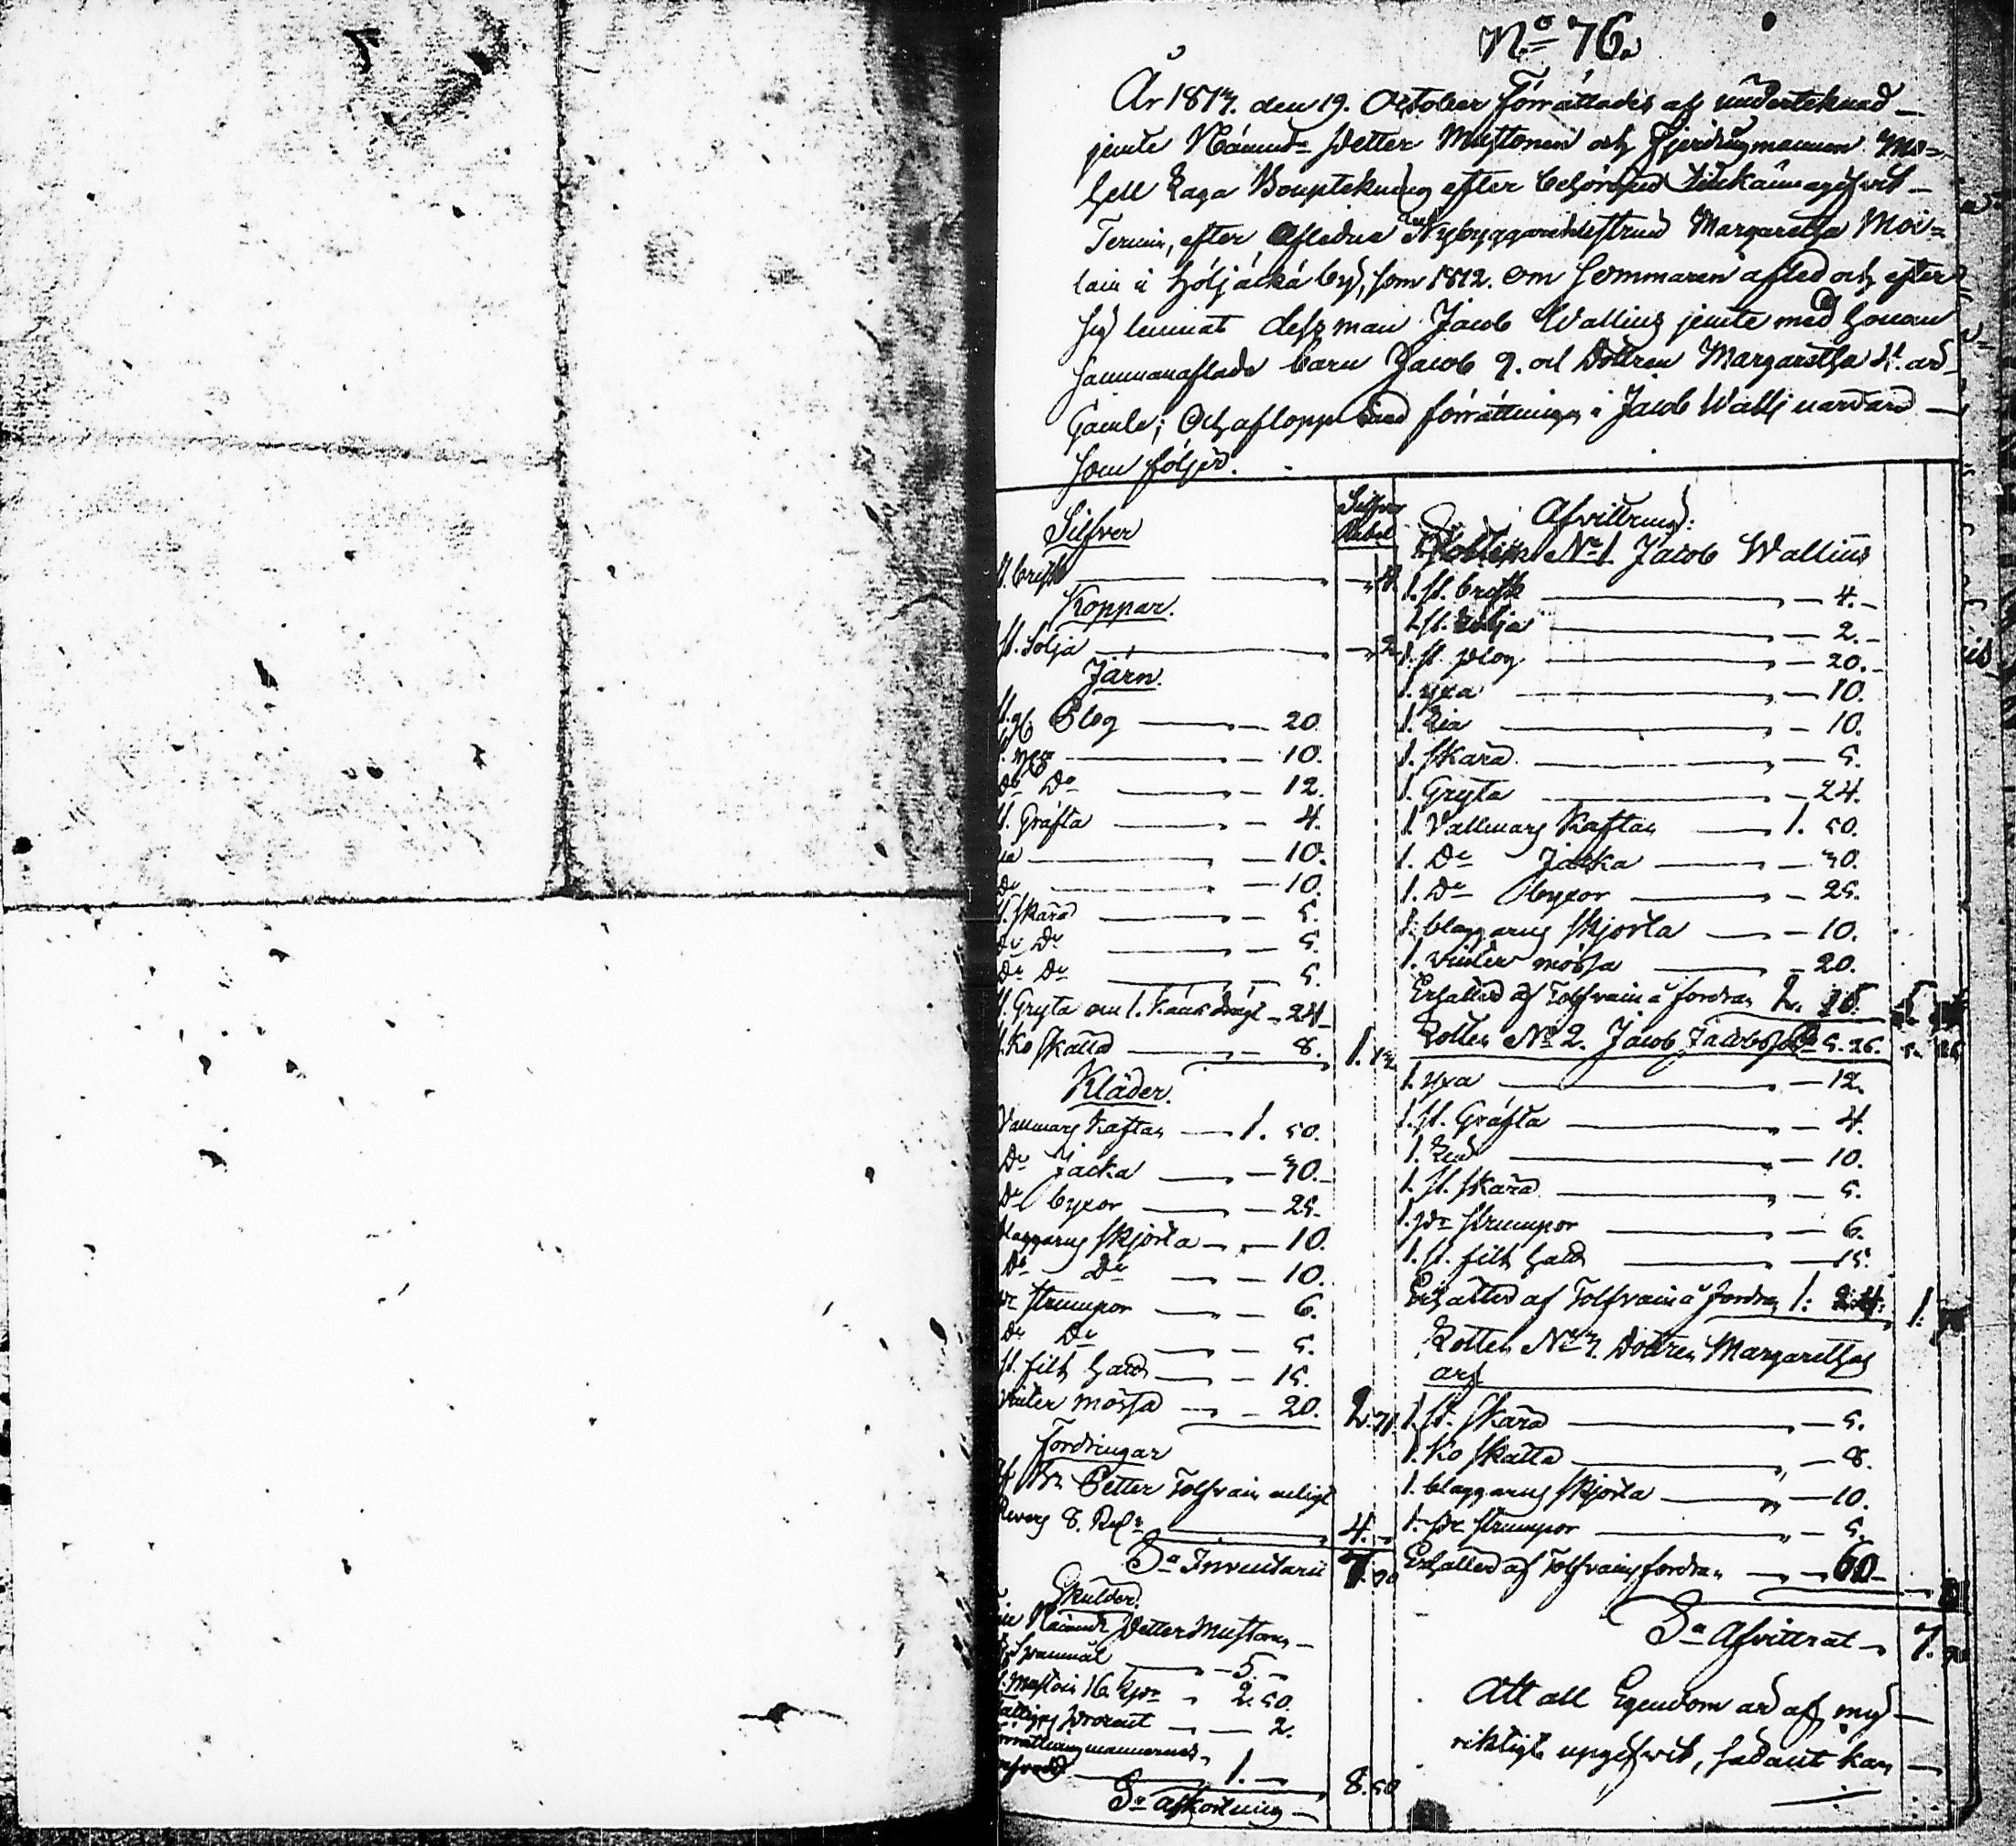 No 76.
År 1813. den 19. October Förrättades af underteknad
jemte Nämnd: Petter Mustonen och Fjerdingsmannen Mi=
hell Raga Bouptekning efter behörigen tilkännagifvit
Termin, efter Aflidne Nybyggarehustrun Margaretha Moi=
lain i Höljäkkä by, som 1812. om Sommaren afled och efter
sig lemnat dess man Jacob Wallius jemte med honom
sammanaflade barn Jacob 9. och Dottren Margaretha 11. år
Gamle; Och aflopp som förrättningen i Jacob Wallii närvaro
som följer.
Silfver
Silfver Rubel
st. brisk 4.
Koppar.
st. Sölja 2
Järn.
st. Plog 20.
st. yxa 10.
do Do 12.
st. Gräfta 4.
lia 10.
Do 10.
st. Skära 5.
do Do 5.
Do Do 5.
st. Gryta om 1. kanns drägt 24.
st. Ko Skälla 8. 1. 13
Kläder.
Vallmars Kaftan 1. 50.
Do Jacka 30.
Do byxor 25.
blaggarns Skjorta 10.
Do Do 10.
pr strumpor 6.
Do Do 5.
st. filt hatt 15.
Vinter mössa 20. 2. 71
Fordringar
af Bn Petter Tolfvain enligt
Revers 8. Rub 4.
Sa Inventarii 7. 90
Skulder.
Nämnd: Petter Muston
Spannmål 5.
Mustoin 16. kpr 2. 50.
fattigas Procent 2.
Förrättningsmannernes
1.
Sa afkortning 8. 50
Afvittring:
Lotten No 1. Jacob Wallius
1. st. brisk 4.
1. st. Sölja 2.
1. st. Plog 20.
1. yxa 10.
1. Lia 10.
1. Skära 5.
1. Gryta 24.
1. Vallmars Kaftan 1. 50.
1. Do Jacka 30.
1. Do byxor 25.
1. blaggarns Skjorta 10.
1. Vinter mössa 20.
Erhåller af Tolfvain å fordran 2.
Lotten No 2. Jacob Jacobsson 5. 26.
1. yxa 12.
1. st. Gräfta 4.
1. Lia 10.
1. st. Skära 5.
1. pr Strumpor 6.
1. st. filt hatt 15.
Erhåller af Tolfvain å fordran 1: 24: 1.
Lotten No 3. Dottren Margarethas
arf
1. st. Skära 5.
1. Ko Skälla 8.
1. blaggarns Skjorta 10.
1. pr Strumpor 5.
Erhåller af Tolfvains fordran 60
Sa Afvittrat 7. 90
Att all Egendom är af mig
riktigt uppgifvit, sådant kan